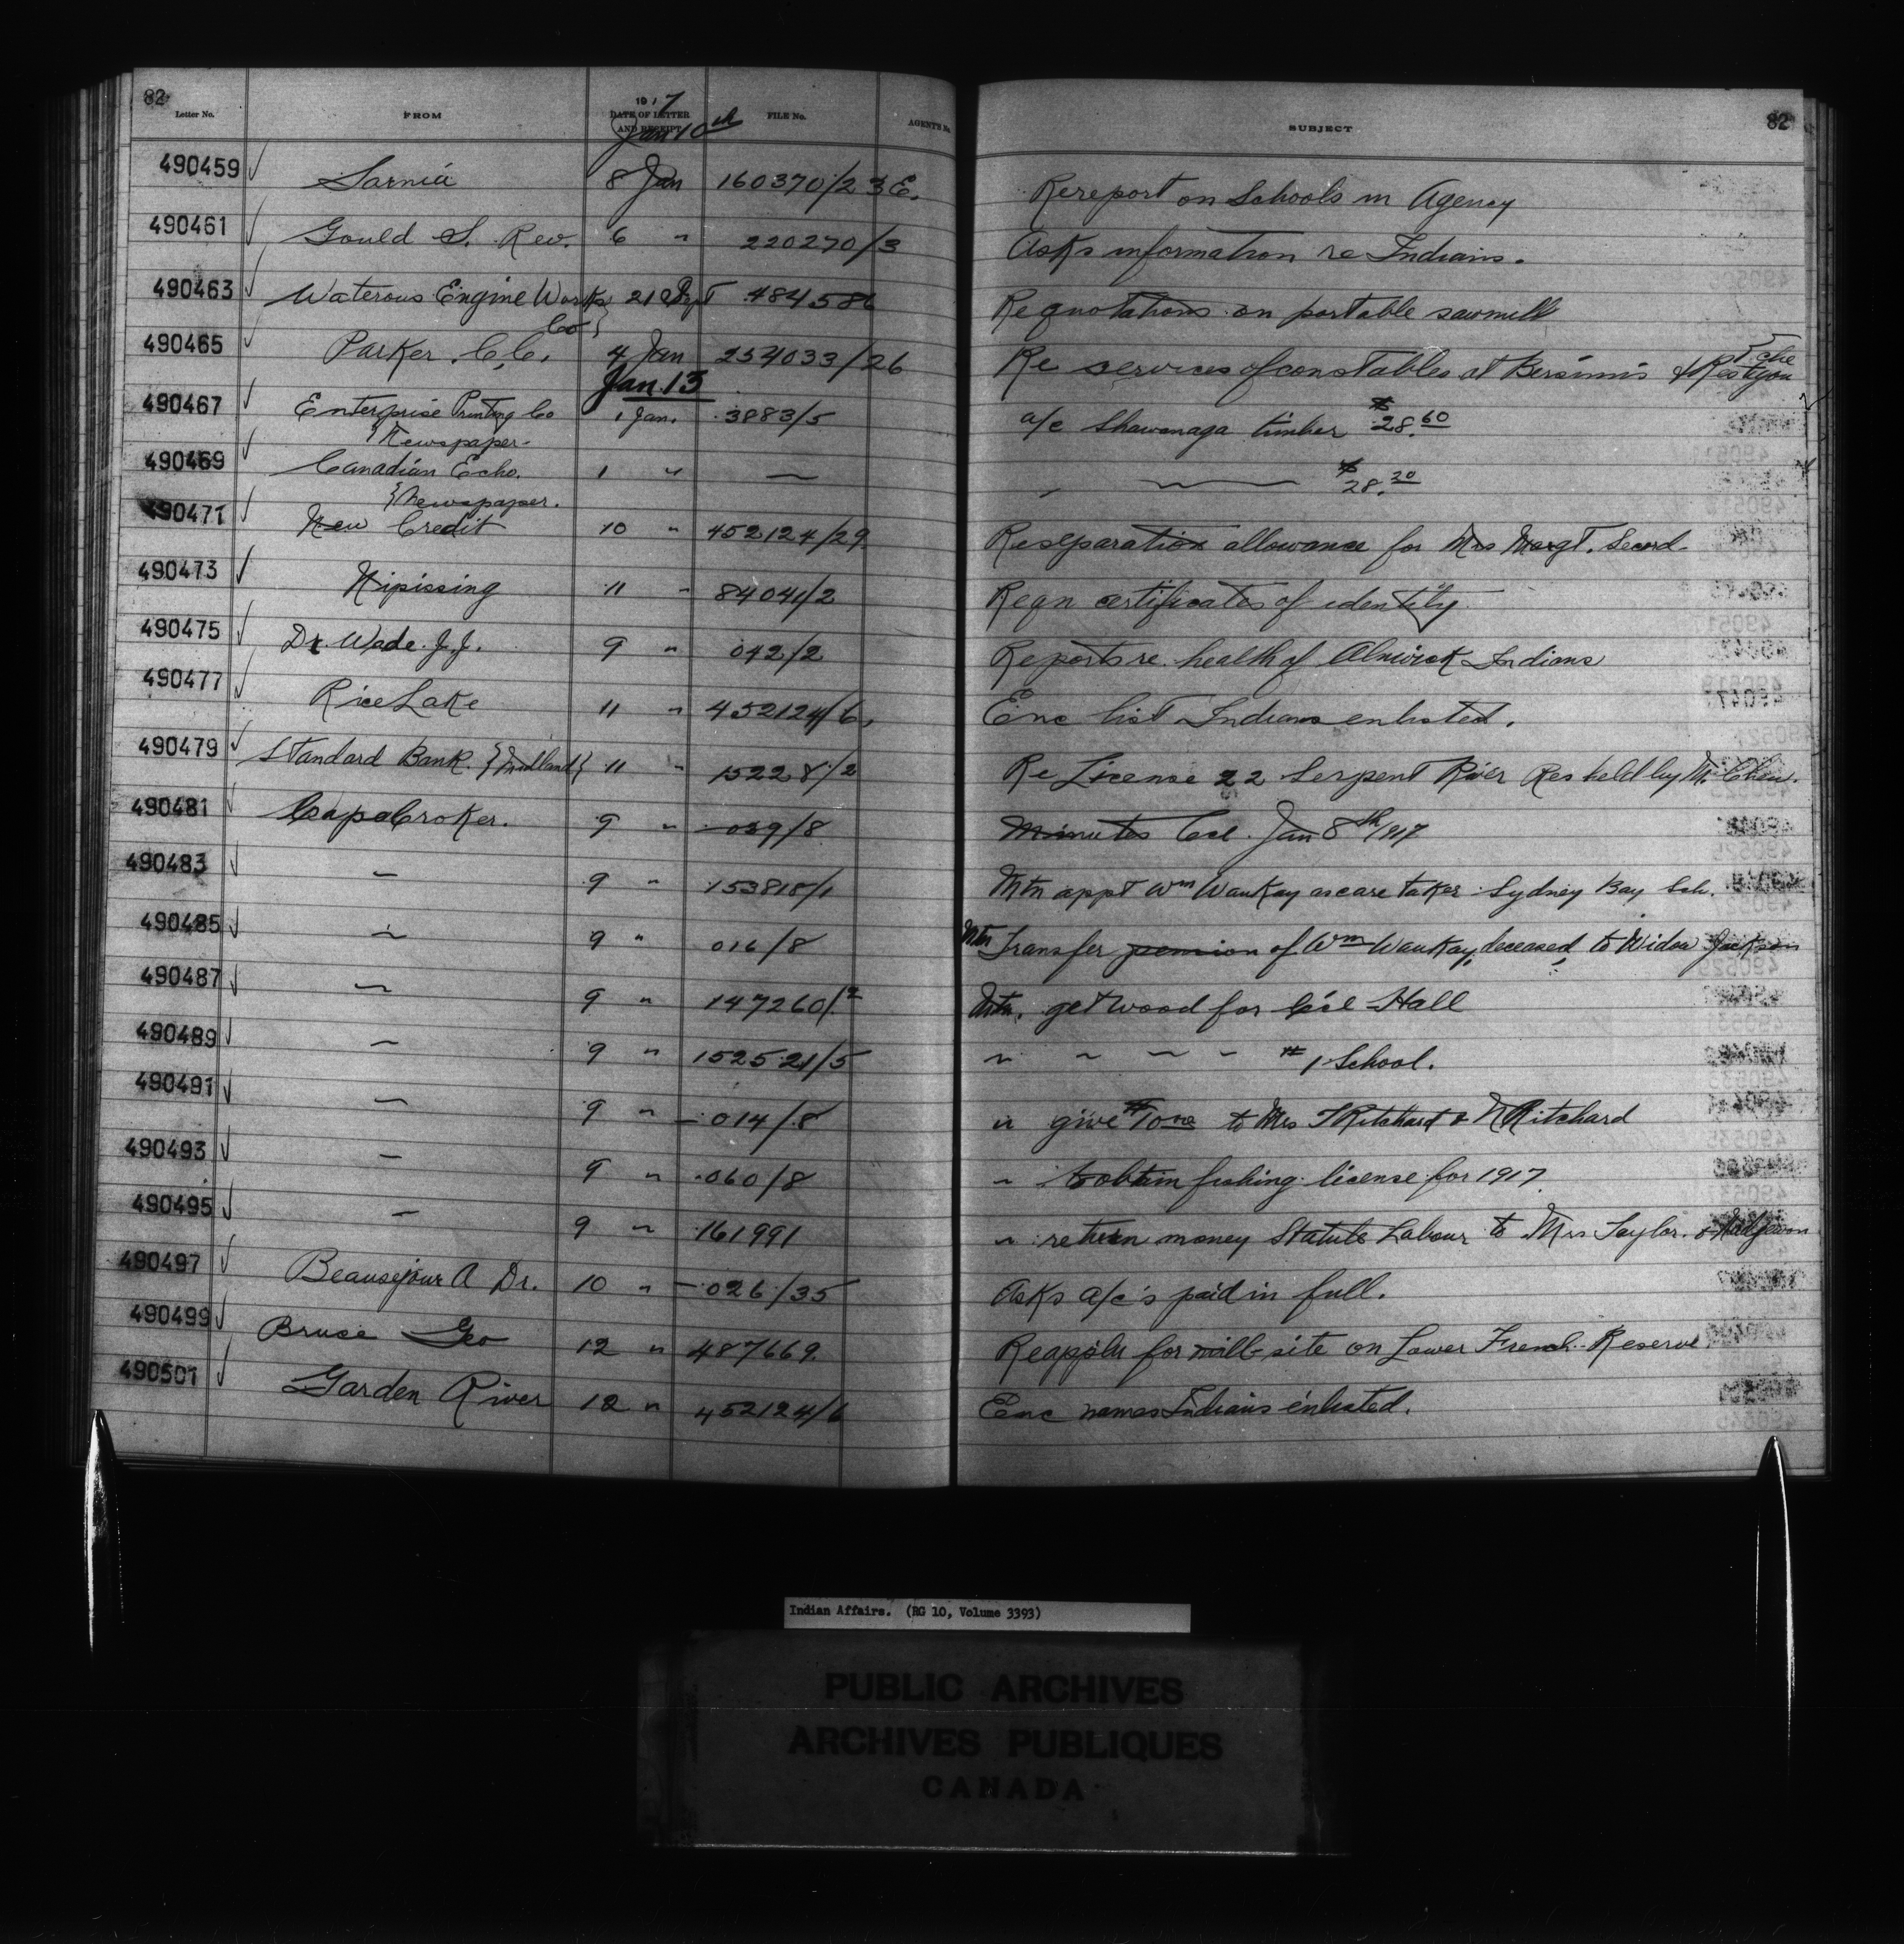 82
Letter No. FROM 1917 DATE OF LETTER AND RECEIPT FILE No. AGENT'S No. SUBJECT 82
Jan 10th
490459 Sarnia 8 Jan 160370/2 3E. Re report on Schools in Agency
490461 Gould S. Rev. 6 " 220270/3 Asks information re Indians.
490463 Waterous Engine Works Co 21 Sept 484586 Re quotations on portable sawmill
490465 Parker. C.C. 4 Jan 254033/26 Re services of constables at Bersimis &
Jan. 13
490467 Enterprise Printing Co 1 Jan. 3883/5 a/c Shawanaga timber $28.60
{Newspaper.
490469 Canadian Echo. 1 " — " — $28.20
{Newspaper.
490471 New Credit 10 " 452124/29 Re separation allowance for Mrs Margt. Secord
490473 Nipissing 11 " 84041/2 Reqn certificates of identity
490475 Dr. Wade. J.J. 9 " 042/2 Reports re health of Alnwick Indians
490477 Rice Lake 11 " 452124/6, Enc list Indians enlisted.
490479 Standard Bank. {Midland} 11 " 15228/2 Re License 22 Serpent River Res held by Mr Chew.
490481 Cape Croker. 9 " 039/8 Minutes Ccl. Jan 8th/1917
490483 " 9 " 153818/1 Mtn appt Wm WauKay as care taker Sydney Bay Sch.
490485 " 9 " 016/8 Mtn Transfer pension of Wm WauKay, deceased, to Widow Jackson
490487 " 9 " 147260/2 Mtn. get wood for Ccl Hall
490489 " 9 " 152521/5 " " " " # 1 School.
490491 " 9 " 014/8 " give $10 to Mrs T Ritchard & N Ritchard
490493 " 9 " 060/8 " to obtain fishing license for 1917
490495 " 9 " 161991 " return money Statute Labour to Mrs Taylor. &
490497 Beausejour A Dr. 10 " 026/35 Asks a/c's paid in full.
490499 Bruce Geo 12 " 487669. Re appln for mill site on Lower French Reserve
490501 Garden River 12 " 452124/6 Enc names Indians enlisted.
Indian Affairs. (RG 10, Volume 3393)
PUBLIC ARCHIVES
ARCHIVES PUBLIQUES
CANADA